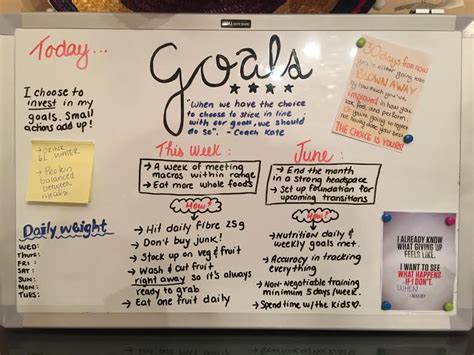 Today...
I choose to
invest in my
goals. Small
actions add up!
- DRINK
6L WATER
- Protein
balanced
between
meals
Daily weight
WED:
THUR:
FRI:
SAT:
SUN:
MON:
TUES:
Goals
"When we have the choice
to choose to stick in line
with our goals, we should
do so". - Coach Kate
This Week:
→ A week of meeting
macros within range
→ Eat more whole foods
How?
→ Hit daily fibre 25g
→ Don't buy junk!
→ Stock up on veg & fruit
→ Wash & cut fruit
right away so it's always
ready to grab
→ Eat one fruit daily
June:
→ End the month
in a strong headspace
→ Set up foundation for
upcoming transitions
How?
→ Nutrition daily &
weekly goals met.
→ Accuracy in tracking
everything
→ Non-negotiable training
minimum 5 days/week.
→ Spend time w/the kids♡.
30 days from now
you're either going to be
BLOWN AWAY
by how much you've
improved in how you
look, feel, and perform
or you're going to
not be any better.
THE CHOICE IS YOURS!
I ALREADY KNOW
WHAT GIVING UP
FEELS LIKE.
I WANT TO SEE
WHAT HAPPENS
IF I DON'T.
WHEN